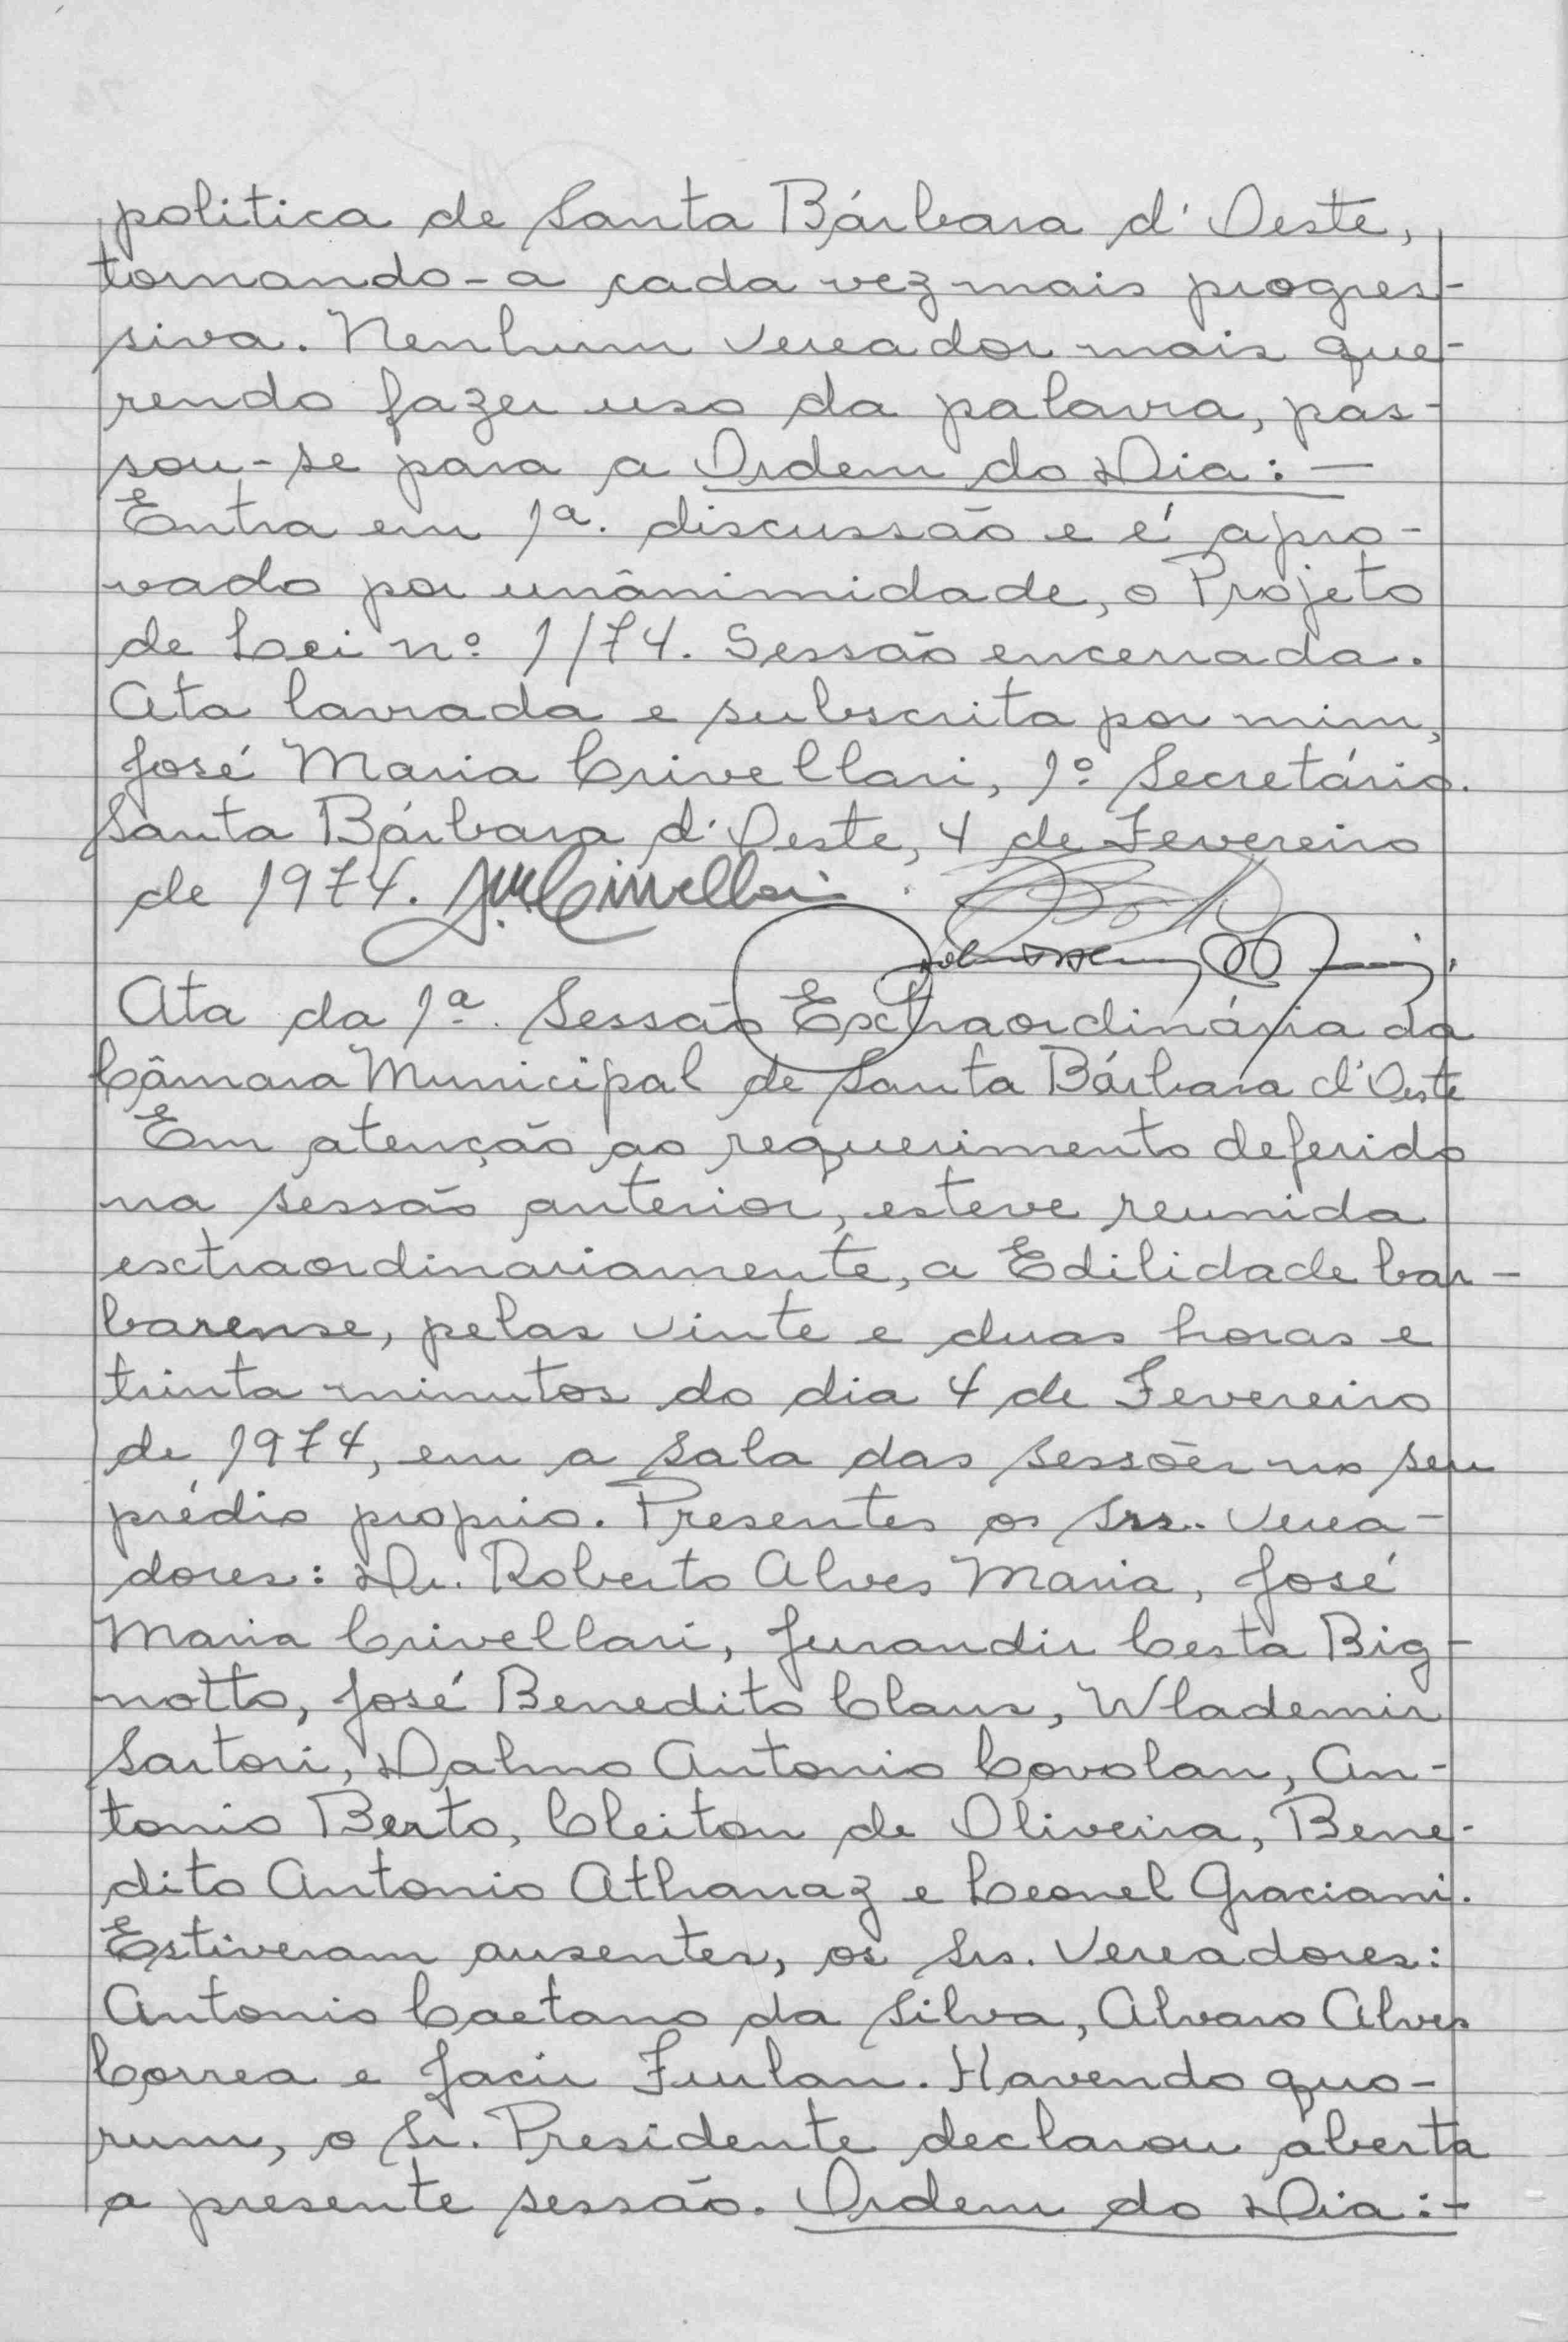 politica de Santa Bárbara d'Oeste,
tornando-a cada vez mais progres-
siva. Nenhum vereador mais que-
rendo fazer uso da palavra, pas-
sou-se para a Ordem do Dia:-
Entra em 1ª. discussão e é apro-
vado por unânimidade, o Projeto
de Lei nº 1/74. Sessão encerrada.
Ata lavrada e subscrita por mim,
José Maria Crivellari, 1º Secretário.
Santa Bárbara d'Oeste, 4 de Fevereiro
de 1974. J.M.Crivellari
Ata da 1ª. Sessão Extraordinária da
Câmara Municipal de Santa Bárbara d'Oeste
Em atenção ao requerimento deferido
na sessão anterior, esteve reunida
extraordinariamente, a Edilidade bar-
barense, pelas vinte e duas horas e
trinta minutos do dia 4 de Fevereiro
de 1974, em a sala das sessões no seu
prédio proprio. Presentes os Srs. Verea-
dores: Dr. Roberto Alves Maria, José
Maria Crivellari, Jurandir Cesta Big-
notto, José Benedito Claus, Wlademir
Sartori, Dalmo Antonio Covolan, An-
tonio Berto, Cleiton de Oliveira, Bene-
dito Antonio Athanaz e Leonel Graciani.
Estiveram ausentes, os Srs. Vereadores:
Antonio Caetano da Silva, Alvaro Alves
Correa e Jacir Furlan. Havendo quo-
rum, o Sr. Presidente declarou aberta
a presente sessão. Ordem do Dia:-